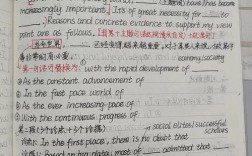 have thus become
increasingly important.] It's of great necessity for ___ to
___. [Reasons and concrete evidence to support my view
point are as follows.]
当今世界, 已经变得越来越重要, 对于某某人来说, 做某件
事非常有必要。
economy/society
with the rapid development of
① As the constant advancement of
② In the fast pace world of
③ As the ever-increasing pace of
④ With the continuous progress of
social elites/successful
scholars
In the first place, there is no doubt that
Based on big data, most of ___ admitted that